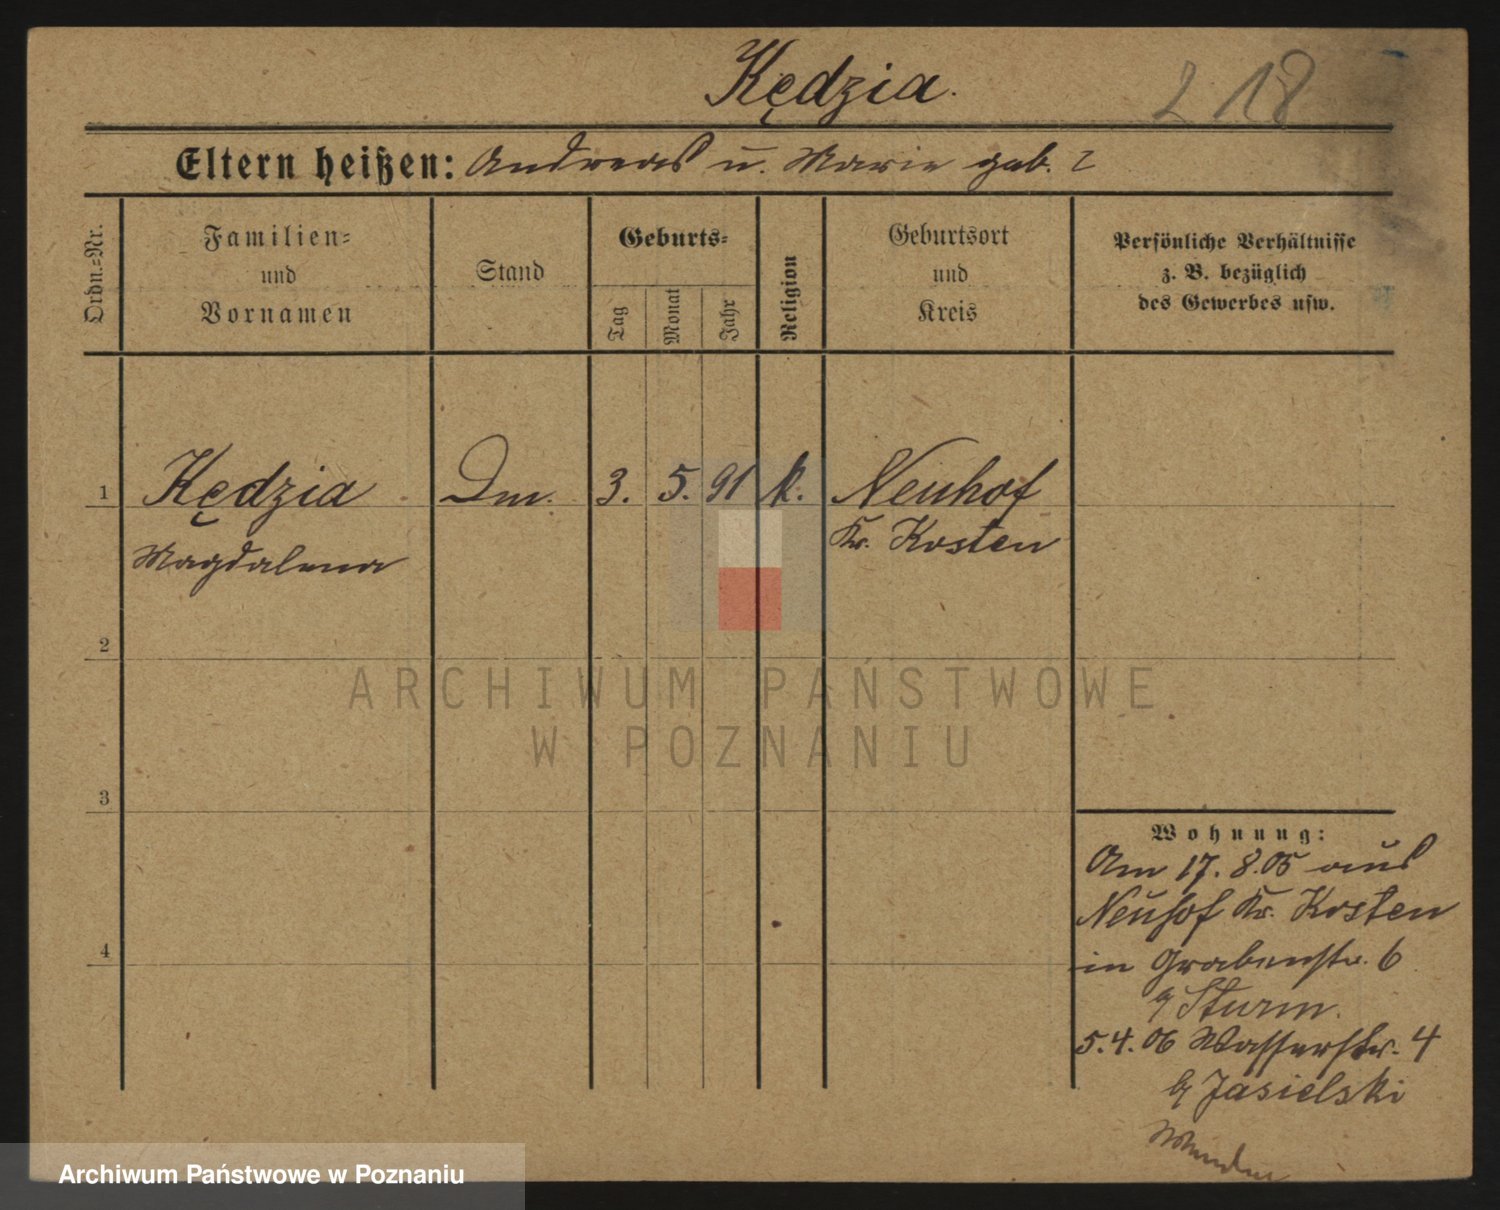 Kędzia.
2 18
Eltern heißen: Andreas u. Marie geb. ?
Ordn.-Nr.
Familien-
und
Vornamen
Stand
Geburts-
Tag
Monat
Jahr
Religion
Geburtsort
und
Kreis
Persönliche Verhältnisse
z. B. bezüglich
des Gewerbes usw.
1 Kędzia Dm. 3. 5. 91 k. Neuhof
Magdalena Kr. Kosten
2
3
4
ARCHIWUM PAŃSTWOWE
W POZNANIU
Wohnung:
Am 17. 8. 05 aus
Neuhof Kr. Kosten
in Grabenstr. 6
Sturm.
5. 4. 06 Wasserstr. 4
Jasielski
Archiwum Państwowe w Poznaniu